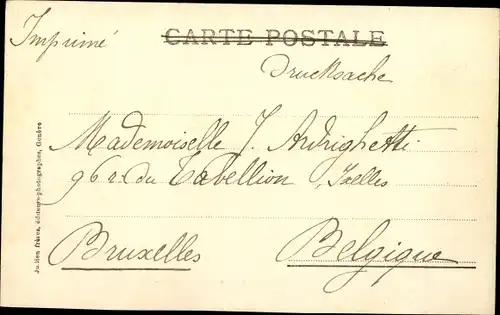 Imprimé
CARTE POSTALE
Drucksache
Mademoiselle J. Andrighetti
96 r. du Tabellion Ixelles
Bruxelles Belgique
Jullien frères, éditeurs-photographes, Genève